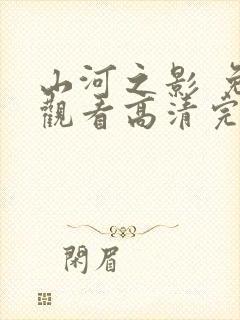 山河之影 免
觀看高清完
閑眉